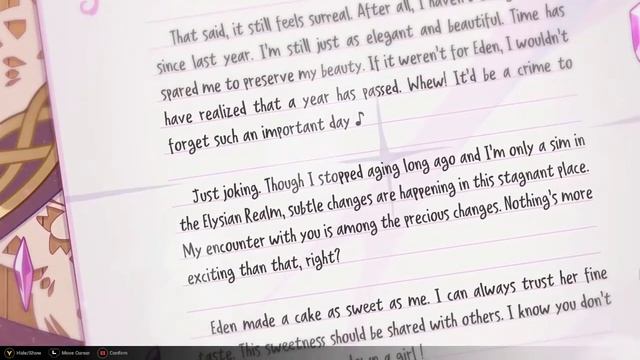 That said, it still feels surreal. After all, I haven't
since last year. I'm still just as elegant and beautiful. Time has
spared me to preserve my beauty. If it weren't for Eden, I wouldn't
have realized that a year has passed. Whew! It'd be a crime to
forget such an important day ♪
Just joking. Though I stopped aging long ago and I'm only a sim in
the Elysian Realm, subtle changes are happening in this stagnant place.
My encounter with you is among the precious changes. Nothing's more
exciting than that, right?
Eden made a cake as sweet as me. I can always trust her fine
taste. This sweetness should be shared with others. I know you don't
a girl!
Y Hide/Show L Move Cursor B Confirm